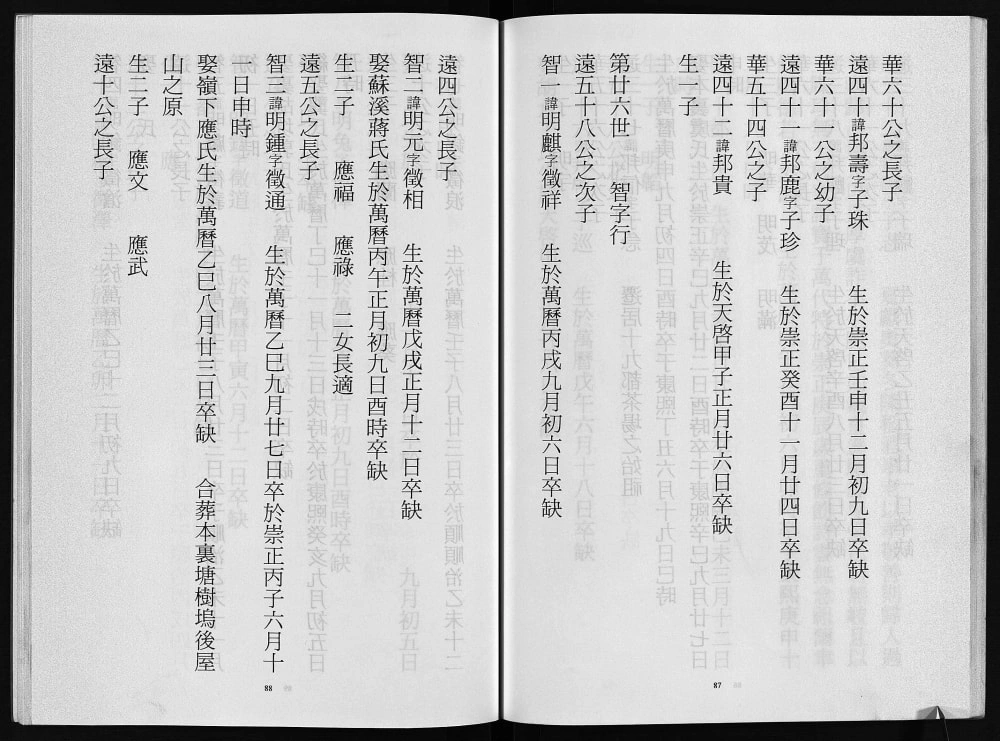 華六十公之長子
遠四十諱邦壽字子珠 生於崇正壬申十二月初九日卒缺
華六十一公之幼子
遠四十一諱邦鹿字子珍 生於崇正癸酉十一月廿四日卒缺
華五十四公之子
遠四十二諱邦貴 生於天啓甲子正月廿六日卒缺
生一子
第廿六世 智字行
遠五十八公之次子
智一諱明麒字徵祥 生於萬曆丙戌九月初六日卒缺
87
遠四公之長子
智二諱明元字徵相 生於萬曆戊戌正月十二日卒缺
娶蘇溪蔣氏生於萬曆丙午正月初九日酉時卒缺
生二子 應福 應祿 二女長適
遠五公之長子
智三諱明鍾字徵通 生於萬曆乙巳九月廿七日卒於崇正丙子六月十
一日申時
娶嶺下應氏生於萬曆乙巳八月廿三日卒缺 合葬本裏塘樹塢後屋
山之原
生二子 應文 應武
遠十公之長子
88